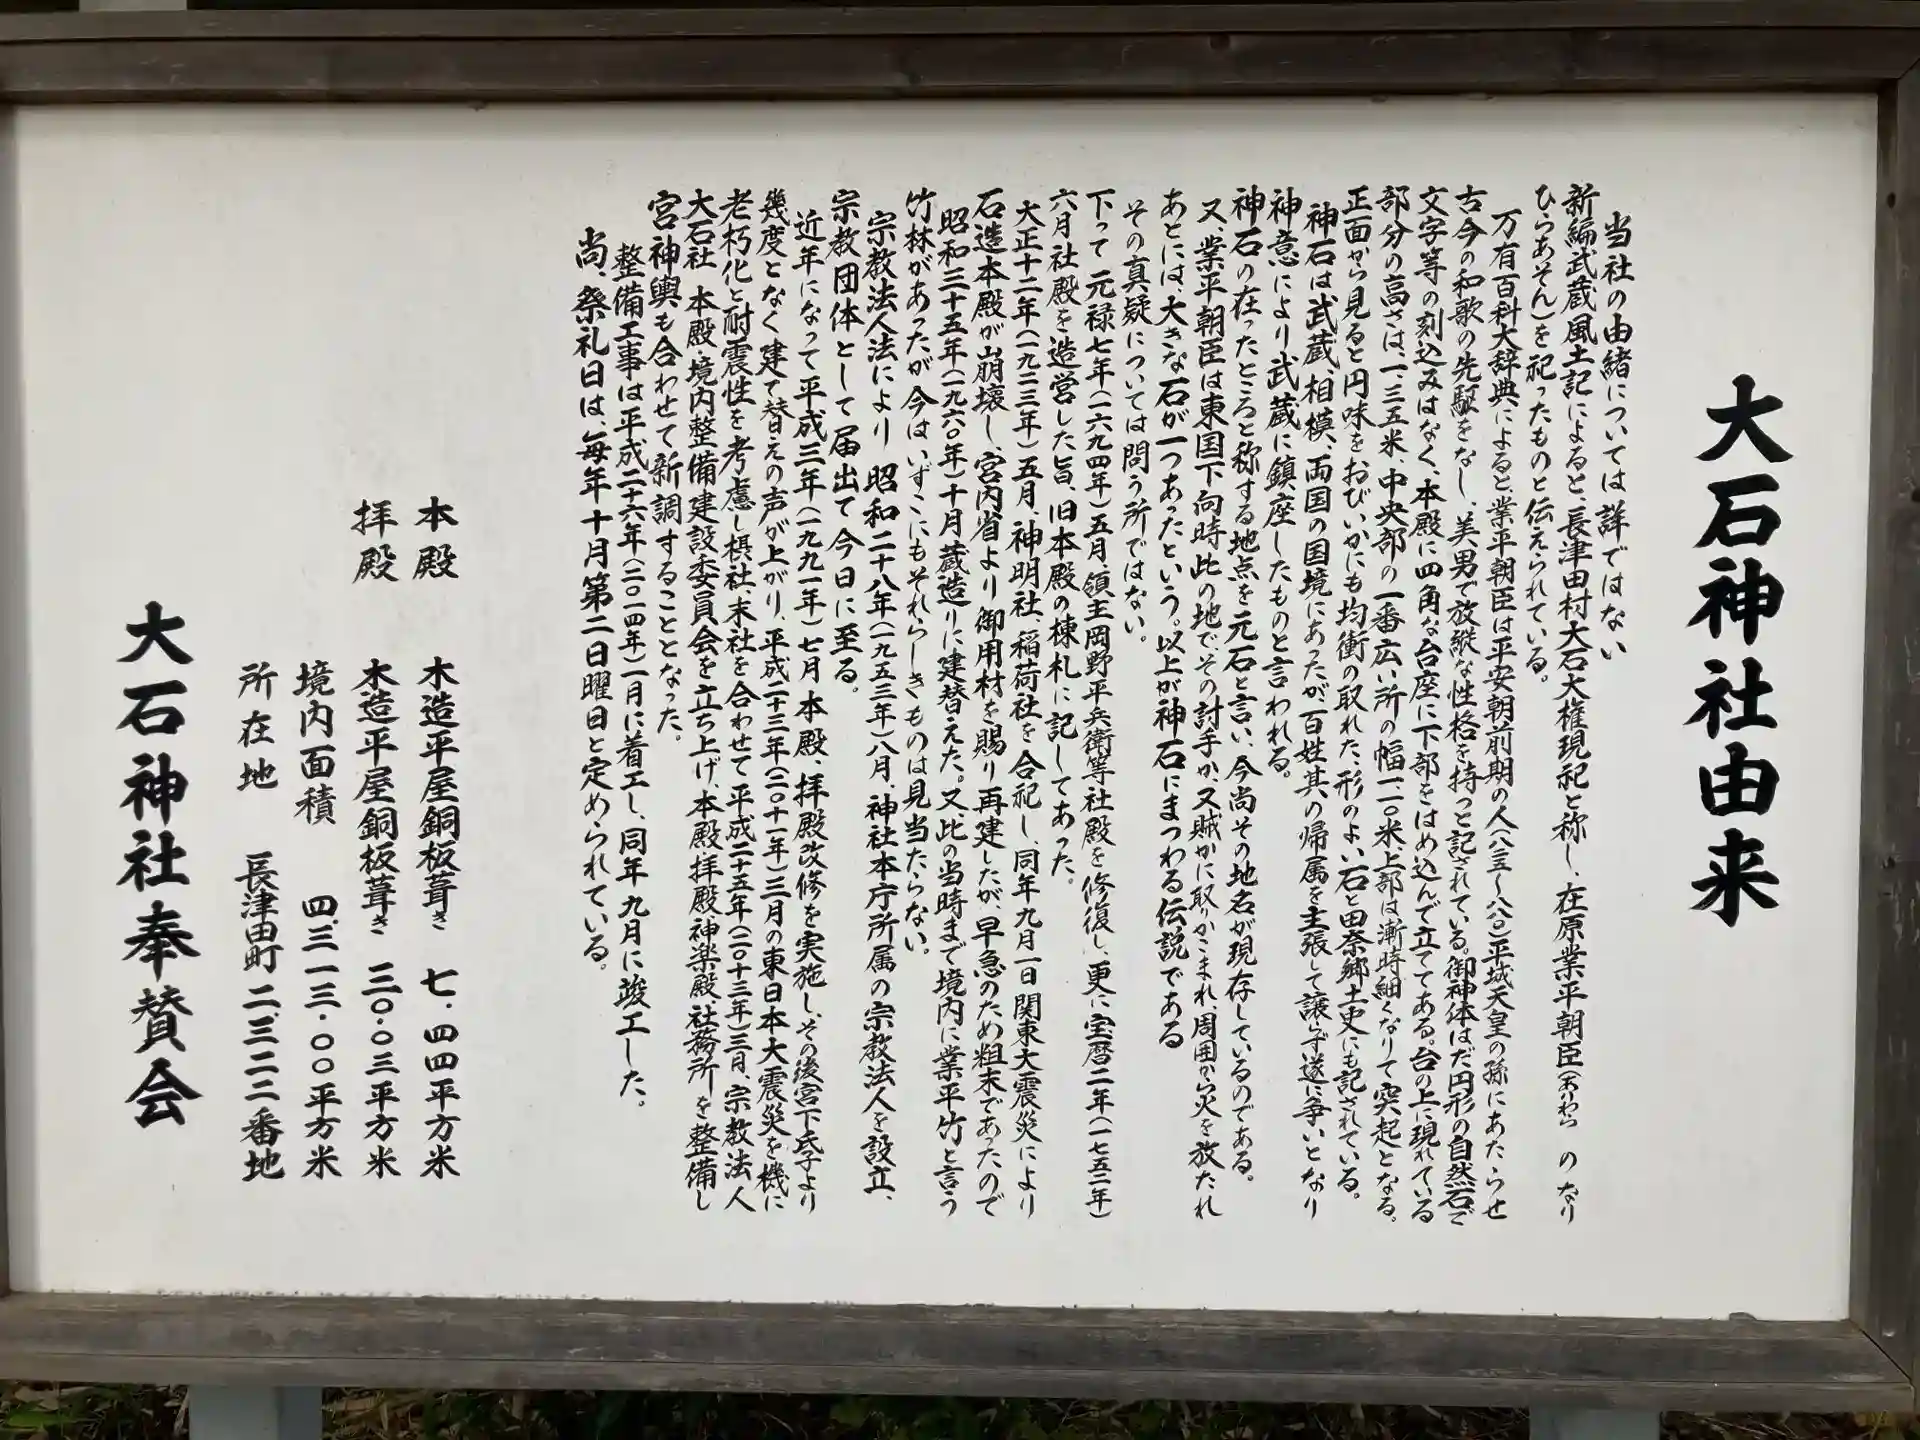 大石神社由来
当社の由緒については詳ではない
新編武蔵風土記によると、長津田村大石大権現祀と称し、在原業平朝臣(ありわら の なり
ひらあそん)を祀ったものと伝えられている。
万有百科大辞典によると、業平朝臣は平安朝前期の人(八二五〜八八〇)平城天皇の孫にあたらせ
古今の和歌の先駆をなし、美男で放縦な性格を持つと記されている。御神体はだ円形の自然石で
文字等の刻込みはなく、本殿に四角な台座に下部をはめ込んで立ててある。台の上に現れている
部分の高さは、一、三五米、中央部の一番広い所の幅一、一〇米、上部は漸時細くなりて突起となる。
正面から見ると円味をおびいかにも均衡の取れた、形のよい石と田奈郷土史にも記されている。
神石は武蔵、相模、両国の国境にあったが、百姓其の帰属を主張して譲らず遂に争いとなり
神意により武蔵に鎮座したものと言われる。
神石の在ったところと称する地点を元石と言い、今尚その地名が現存しているのである。
又、業平朝臣は東国下向時、此の地で、その討手か、又賊かに取りかこまれ、周囲から火を放たれ
あとには、大きな石が一つあったという。以上が神石にまつわる伝説である
その真疑については問う所ではない。
下って 元禄七年(一六九四年)五月、領主岡野平兵衛等社殿を修復し、更に宝暦二年(一七五二年)
六月社殿を造営した旨、旧本殿の棟札に記してあった。
大正十二年(一九二三年)五月、神明社、稲荷社を合祀し、同年九月一日関東大震災により
石造本殿が崩壊し、宮内省より御用材を賜り再建したが、早急のため粗末であったので
昭和三十五年(一九六〇年)十月蔵造りに建替えた。又、此の当時まで境内に業平竹と言う
竹林があったが今はいずこにもそれらしきものは見当たらない。
宗教法人法により 昭和二十八年(一九五三年)八月、神社本庁所属の宗教法人を設立、
宗教団体として届出て今日に至る。
近年になって平成三年(一九九一年)七月本殿、拝殿改修を実施し、その後宮下氏子より
幾度となく建て替えの声が上がり、平成二十三年(二〇十一年)三月の東日本大震災を機に
老朽化と耐震性を考慮し摂社、末社を合わせて平成二十五年(二〇十三年)三月、宗教法人
大石社 本殿・境内整備建設委員会を立ち上げ、本殿・拝殿・神楽殿、社務所を整備し
宮神輿も合わせて新調することとなった。
整備工事は平成二十六年(二〇一四年)一月に着工し、同年九月に竣工した。
尚、祭礼日は、毎年十月第二日曜日と定められている。
本殿 木造平屋銅板葺き 七・四四平方米
拝殿 木造平屋銅板葺き 三〇・〇三平方米
境内面積 四、三一三・〇〇平方米
所在地 長津田町二、三二二番地
大石神社奉賛会